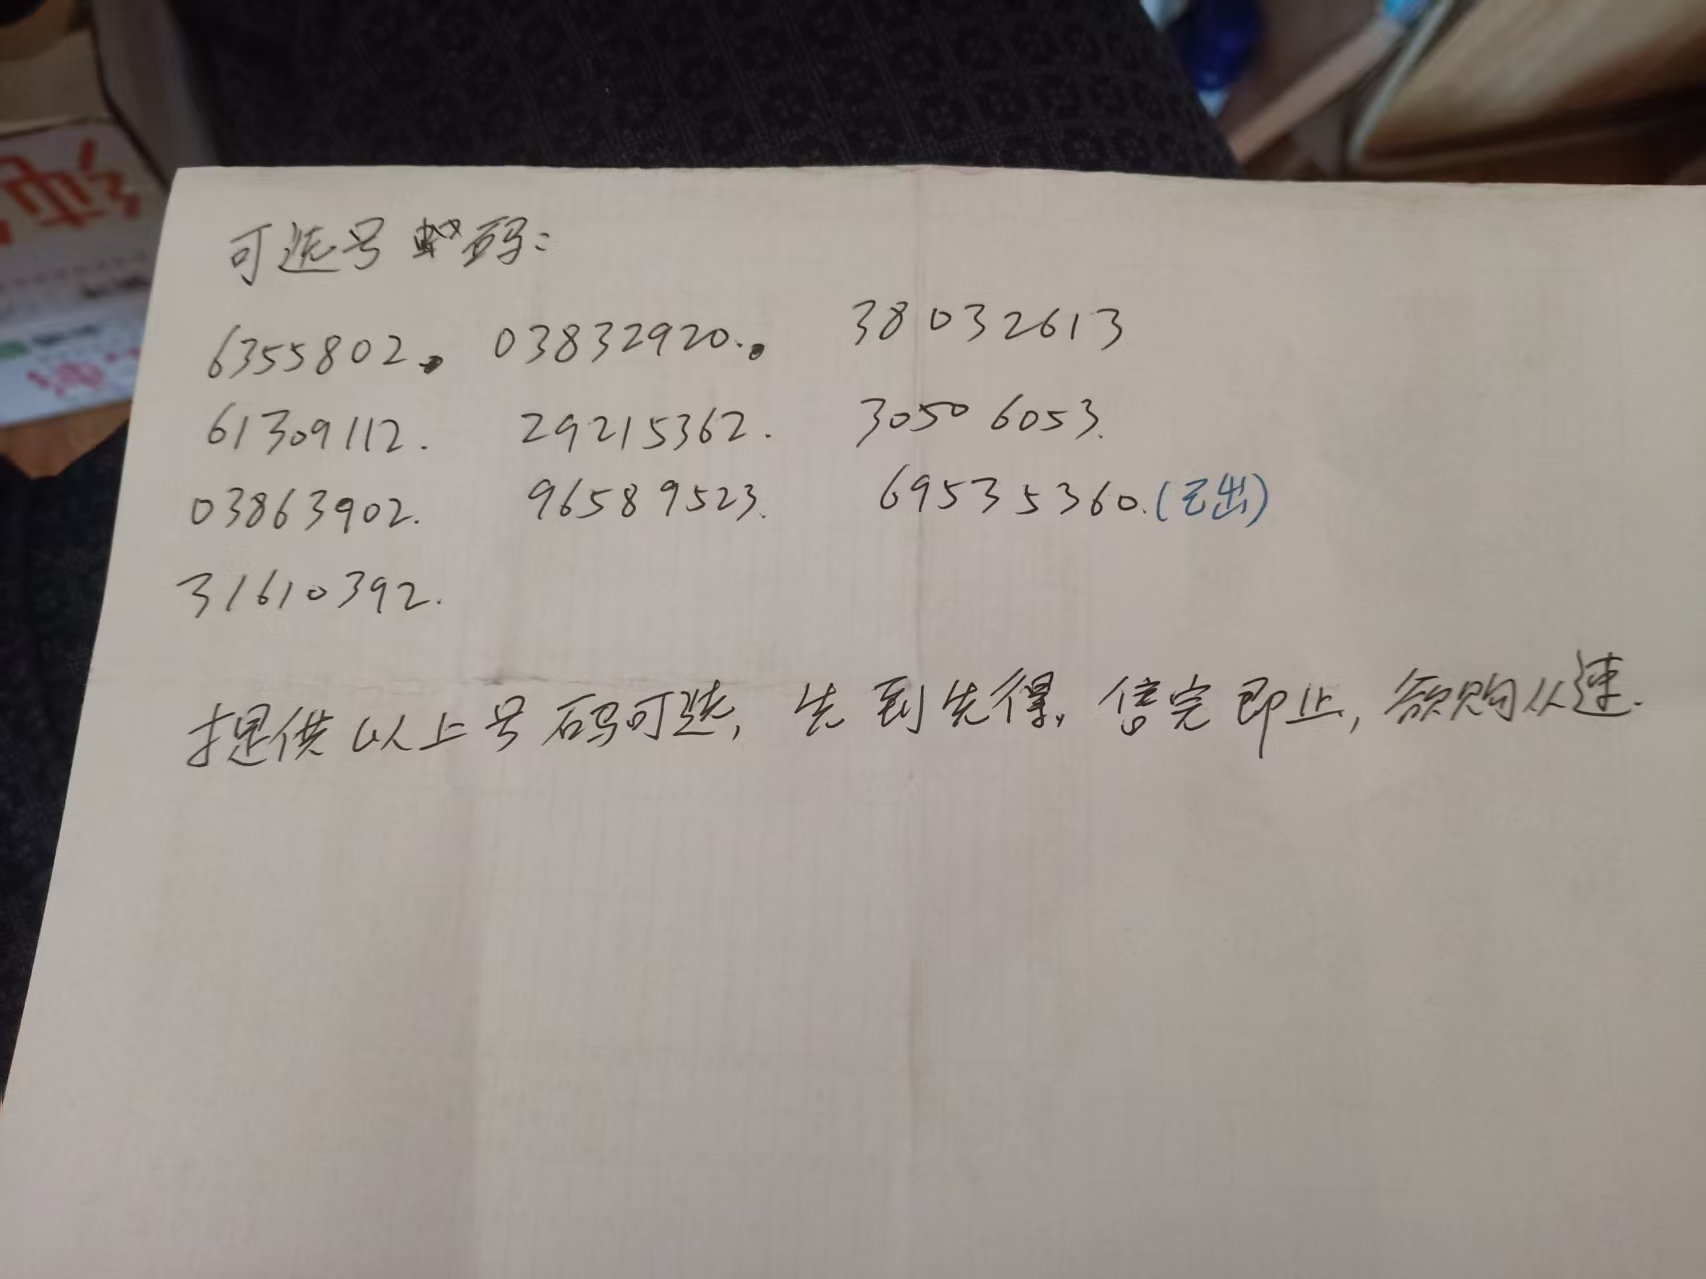 可选号码：
6355802. 03832920. 38032613
61309112. 29215362. 30506053.
03863902. 96589523. 69535360.(已出)
31610392.
提供以上号码可选, 先到先得, 售完即止, 欲购从速.